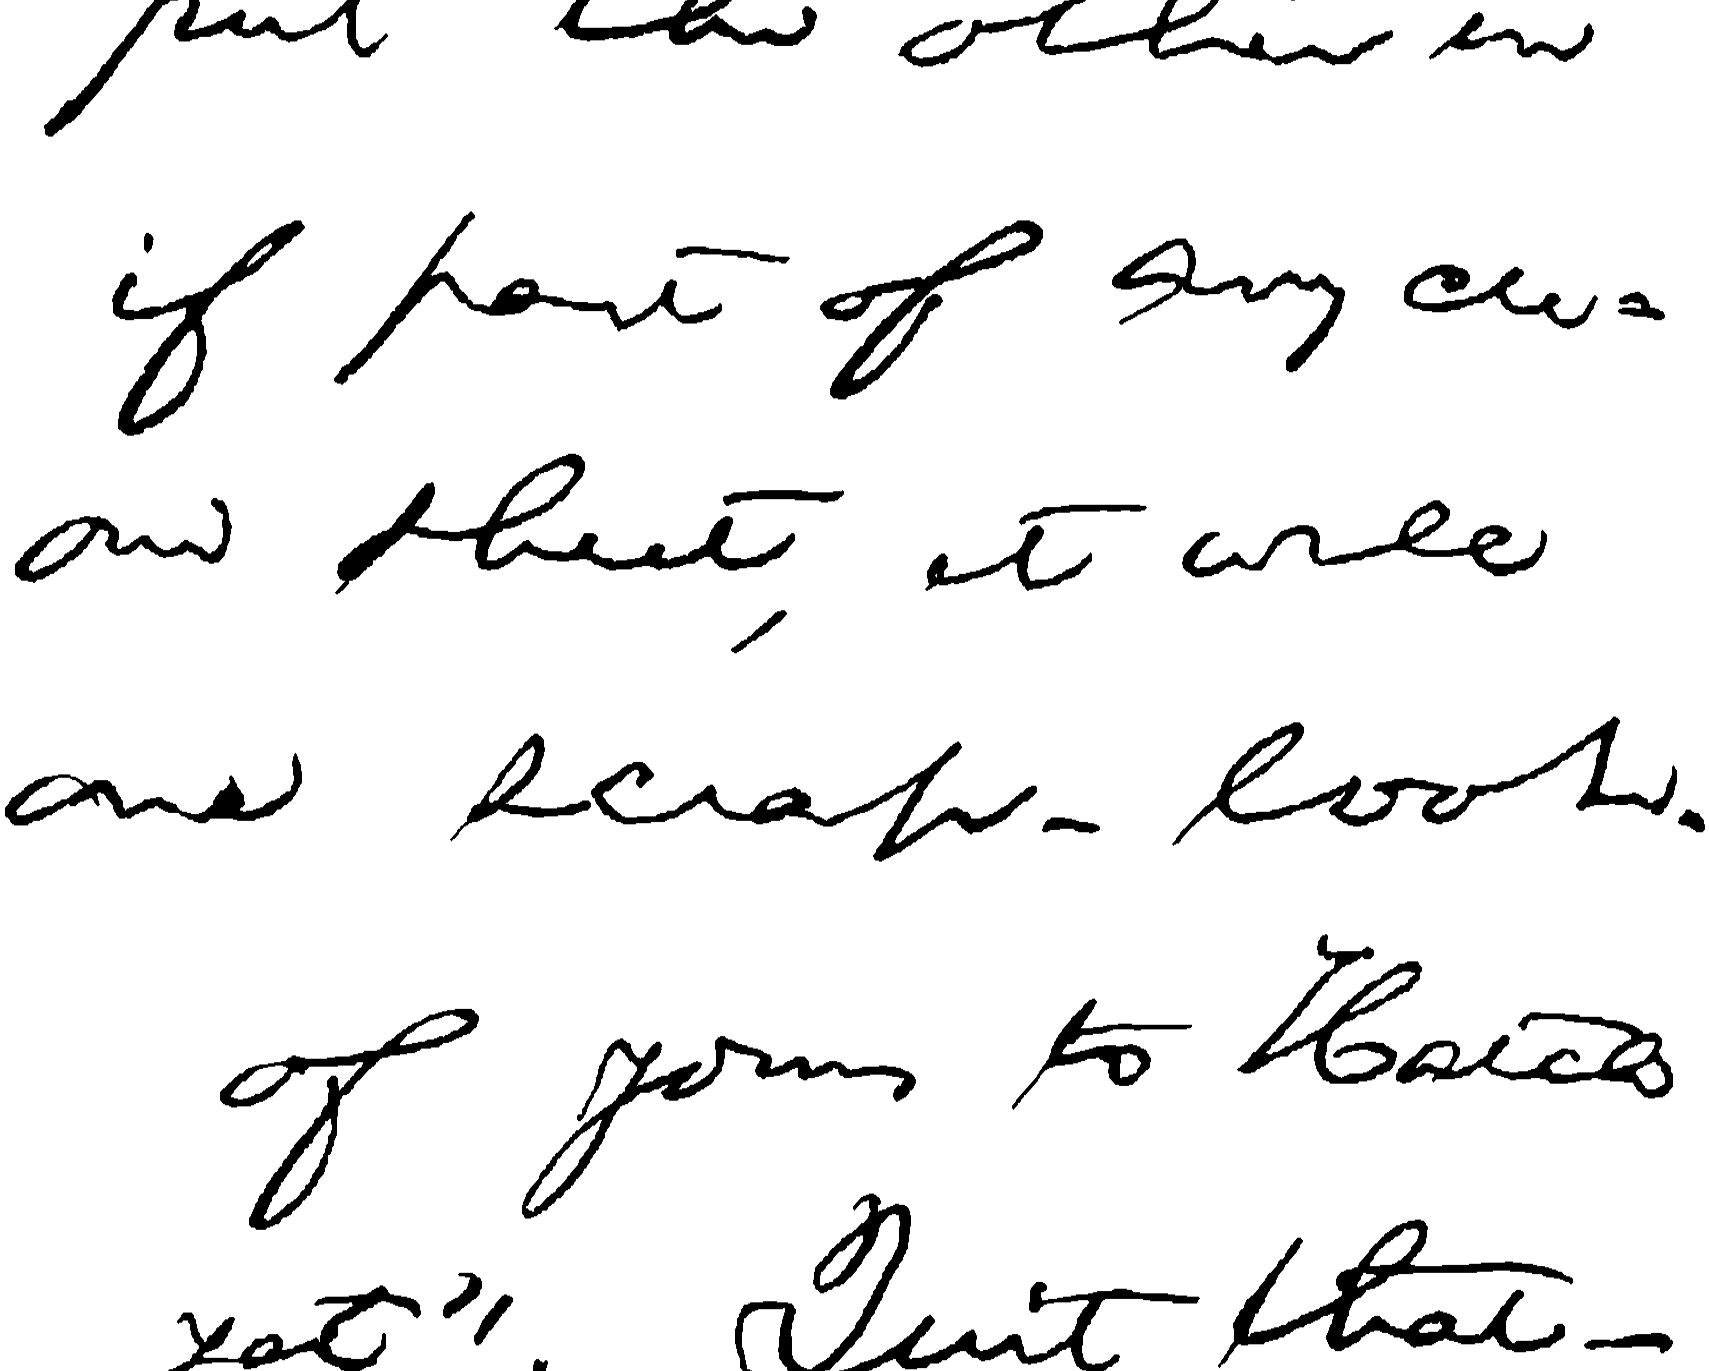 put the other in
if part of my cle=
on sheet, it will
one scrap-book.
of yours to
yet". Quit that-